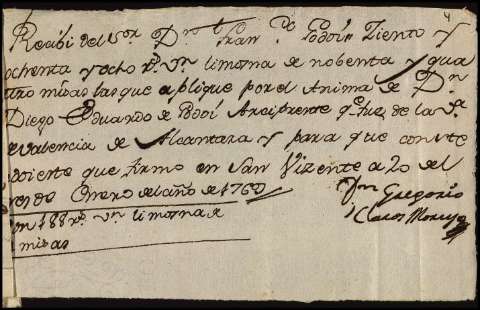 Recibi del Sor. Dn. Fran.co de Godoi Ziento y
ochenta y ocho rs. vn. limosna de nobenta y qua
tro misas las que aplique por el Anima de Dn.
Diego Eduardo de Godoi Arciprente q.e fue de la Va.
de Valencia de Alcantara y para que conste
doi este que firmo en San Vizente a 20 del
mes de Enero del año de 1760
Son 188 rs. vn. limosna de
misas
Dn. Gregorio
Claros